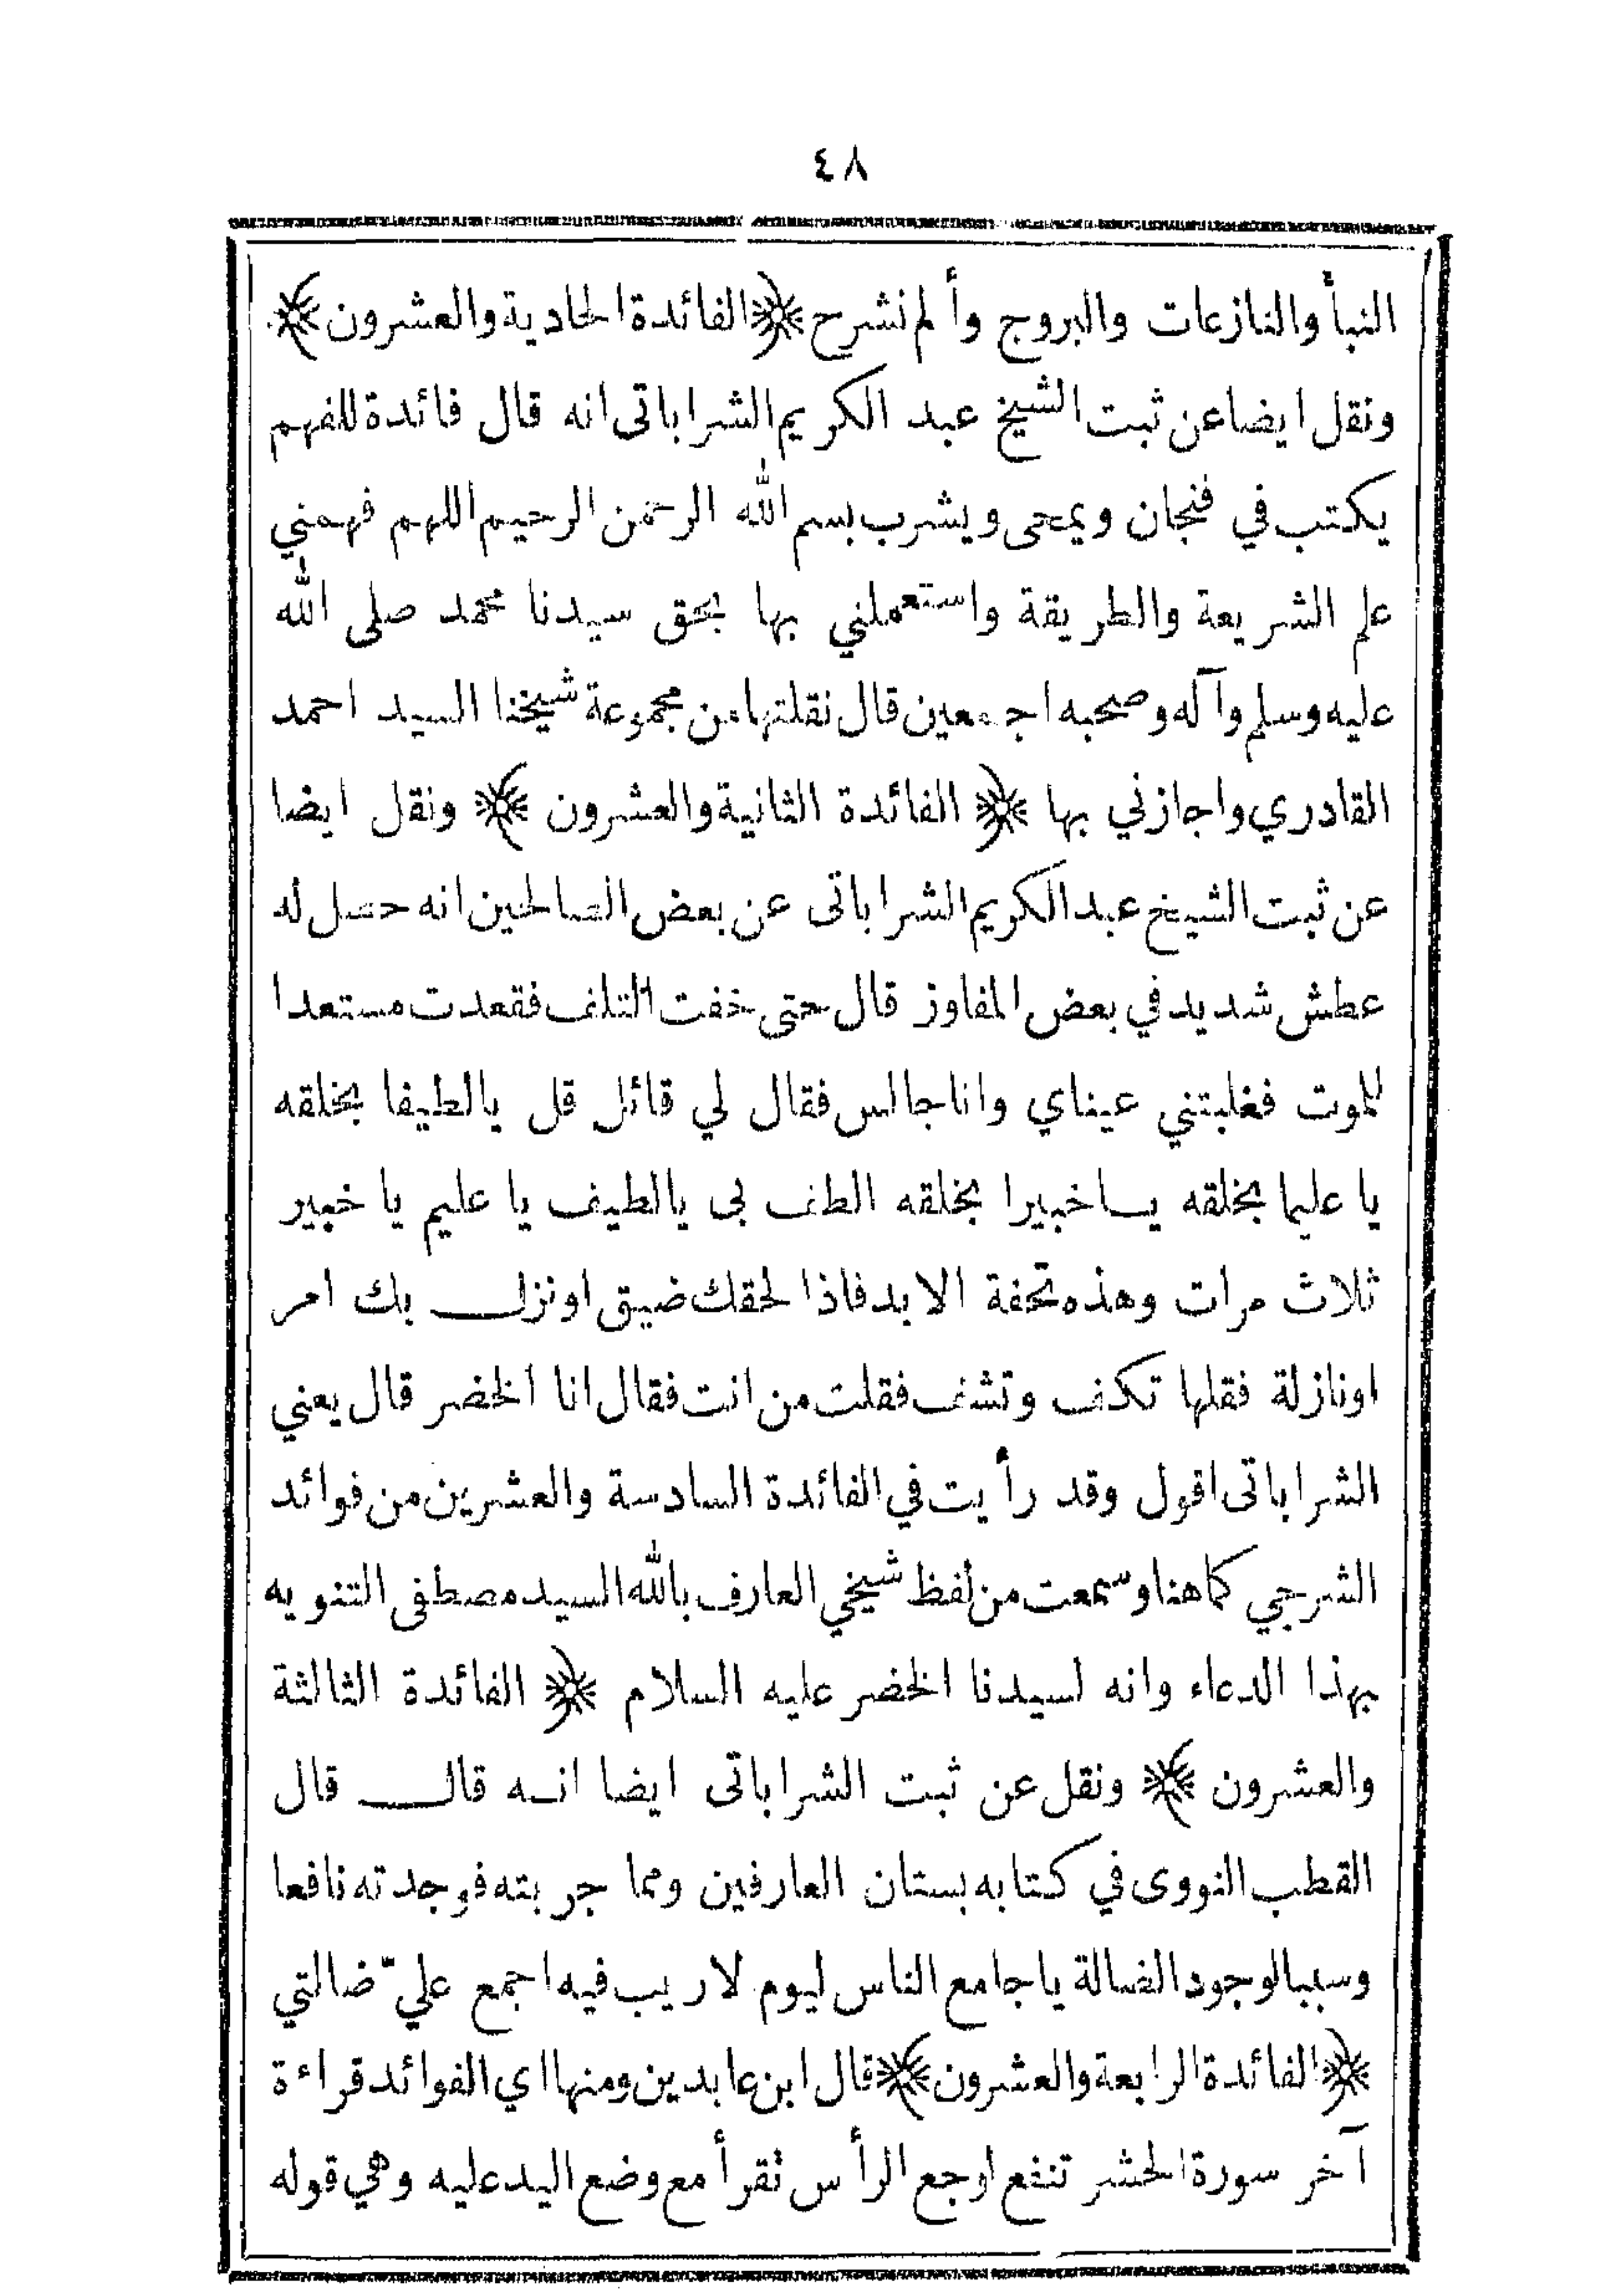 ٤٨
النبأ والنازعات والبروج وألم نشرح ﴿الفائدة الحادية والعشرون﴾
ونقل ايضا عن ثبت الشيخ عبد الكريم الشراباتى انه قال فائدة للفهم
يكتب في فنجان ويمحى ويشرب بسم الله الرحمن الرحيم اللهم فهمني
علم الشريعة والطريقة واستعملني بها بحق سيدنا محمد صلى الله
عليه وسلم وآله وصحبه اجمعين قال نقلتها من مجموعة شيخنا السيد احمد
القادري واجازني بها ﴿ الفائدة الثانية والعشرون ﴾ ونقل ايضا
عن ثبت الشيخ عبد الكريم الشراباتى عن بعض الصالحين انه حصل له
عطش شديد في بعض المفاوز قال حتى خفت التلف فقعدت مستعدا
للموت فغلبتني عيناي وانا جالس فقال لي قائل قل يالطيفا بخلقه
يا عليما بخلقه يا خبيرا بخلقه الطف بى يالطيف يا عليم يا خبير
ثلاث مرات وهذه تحفة الابد فاذا لحقك ضيق او نزل بك امر
او نازلة فقلها تكف وتشف فقلت من انت فقال انا الخضر قال يعني
الشراباتى اقول وقد رأيت في الفائدة السادسة والعشرين من فوائد
الشرجي كما هنا وسمعت من لفظ شيخي العارف بالله السيد مصطفى التنويه
بهذا الدعاء وانه لسيدنا الخضر عليه السلام ﴿ الفائدة الثالثة
والعشرون ﴾ ونقل عن ثبت الشراباتى ايضا انه قال قال
القطب النووى في كتابه بستان العارفين ومما جربته فوجدته نافعا
وسببا لوجود الضالة يا جامع الناس ليوم لاريب فيه اجمع عليّ ضالتي
﴿الفائدة الرابعة والعشرون﴾ قال ابن عابدين ومنها اي الفوائد قراءة
آخر سورة الحشر تنفع لوجع الرأس تقرأ مع وضع اليد عليه وهي قوله